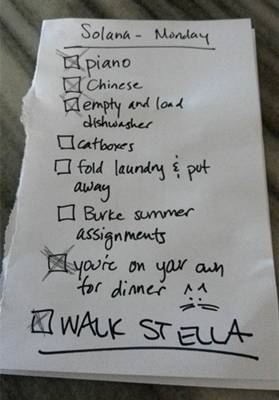 Solana - Monday
piano
Chinese
empty and load
dishwasher
catboxes
fold laundry & put
away
Burke summer
assignments
you're on your own
for dinner ^^
WALK STELLA